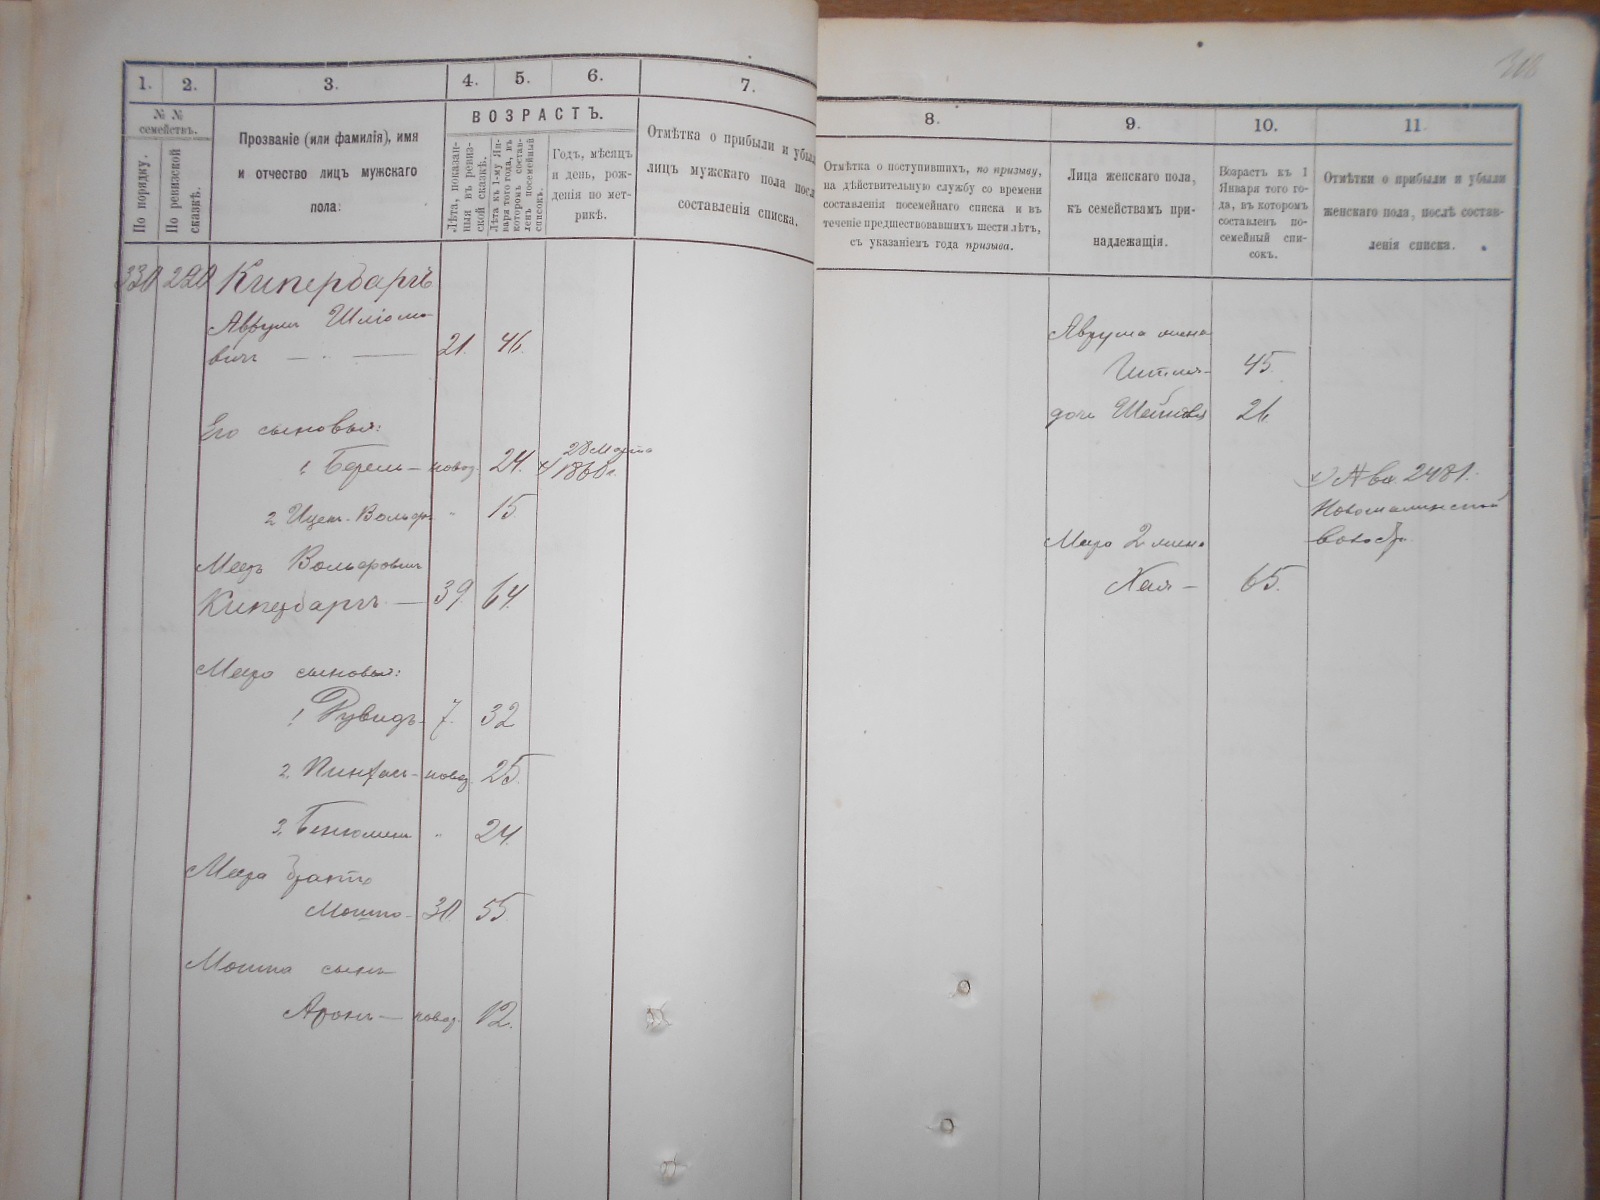 1. 2. 3. 4. 5. 6. 7.
№ №
семействъ.
По порядку.
По ревизской сказкѣ.
Прозваніе (или фамилія), имя
и отчество лицъ мужскаго
пола:
ВОЗРАСТЪ.
Лѣта, показан-
ныя въ ревиз-
ской сказкѣ.
Лѣта къ 1-му Ян-
варя того года, въ
которомъ состав-
ленъ посемейный
списокъ.
Годъ, мѣсяцъ
и день, рож-
денія по мет-
рикѣ.
Отмѣтка о прибыли и убыли
лицъ мужскаго пола посл
составленія списка.
330 220 Кипербаргъ
Аврумъ Шліомо-
вичъ 21. 46.
Его сыновья:
1 Берель - новор. 24. х) 28 Марта
1868 г.
2 Ицек-Вольф " 15
Мееръ Вольфовичъ
Кипербаргъ 39 64.
Меера сыновья:
1 Рувидъ 7. 32
2. Пинхас - новор. 25.
3. Бенюминъ " 24.
Меера братъ
Мошко - 30 55.
Мошка сынъ
Аронъ - новор. 12.
318
8. 9. 10. 11.
Отмѣтка о поступившихъ, по призыву,
на дѣйствительную службу со времени
составленія посемейнаго списка и въ
теченіе предшествовавшихъ шести лѣтъ,
съ указаніемъ года призыва.
Лица женскаго пола,
къ семействамъ при-
надлежащія.
Возрастъ къ 1
Января того го-
да, въ которомъ
составленъ по-
семейный спи-
сокъ.
Отмѣтки о прибыли и убыли
женскаго пола, послѣ состав-
ленія списка.
Аврума жена
45.
дочь Шейндля 21.
х)
Меера 2 жена
Хая - 65.